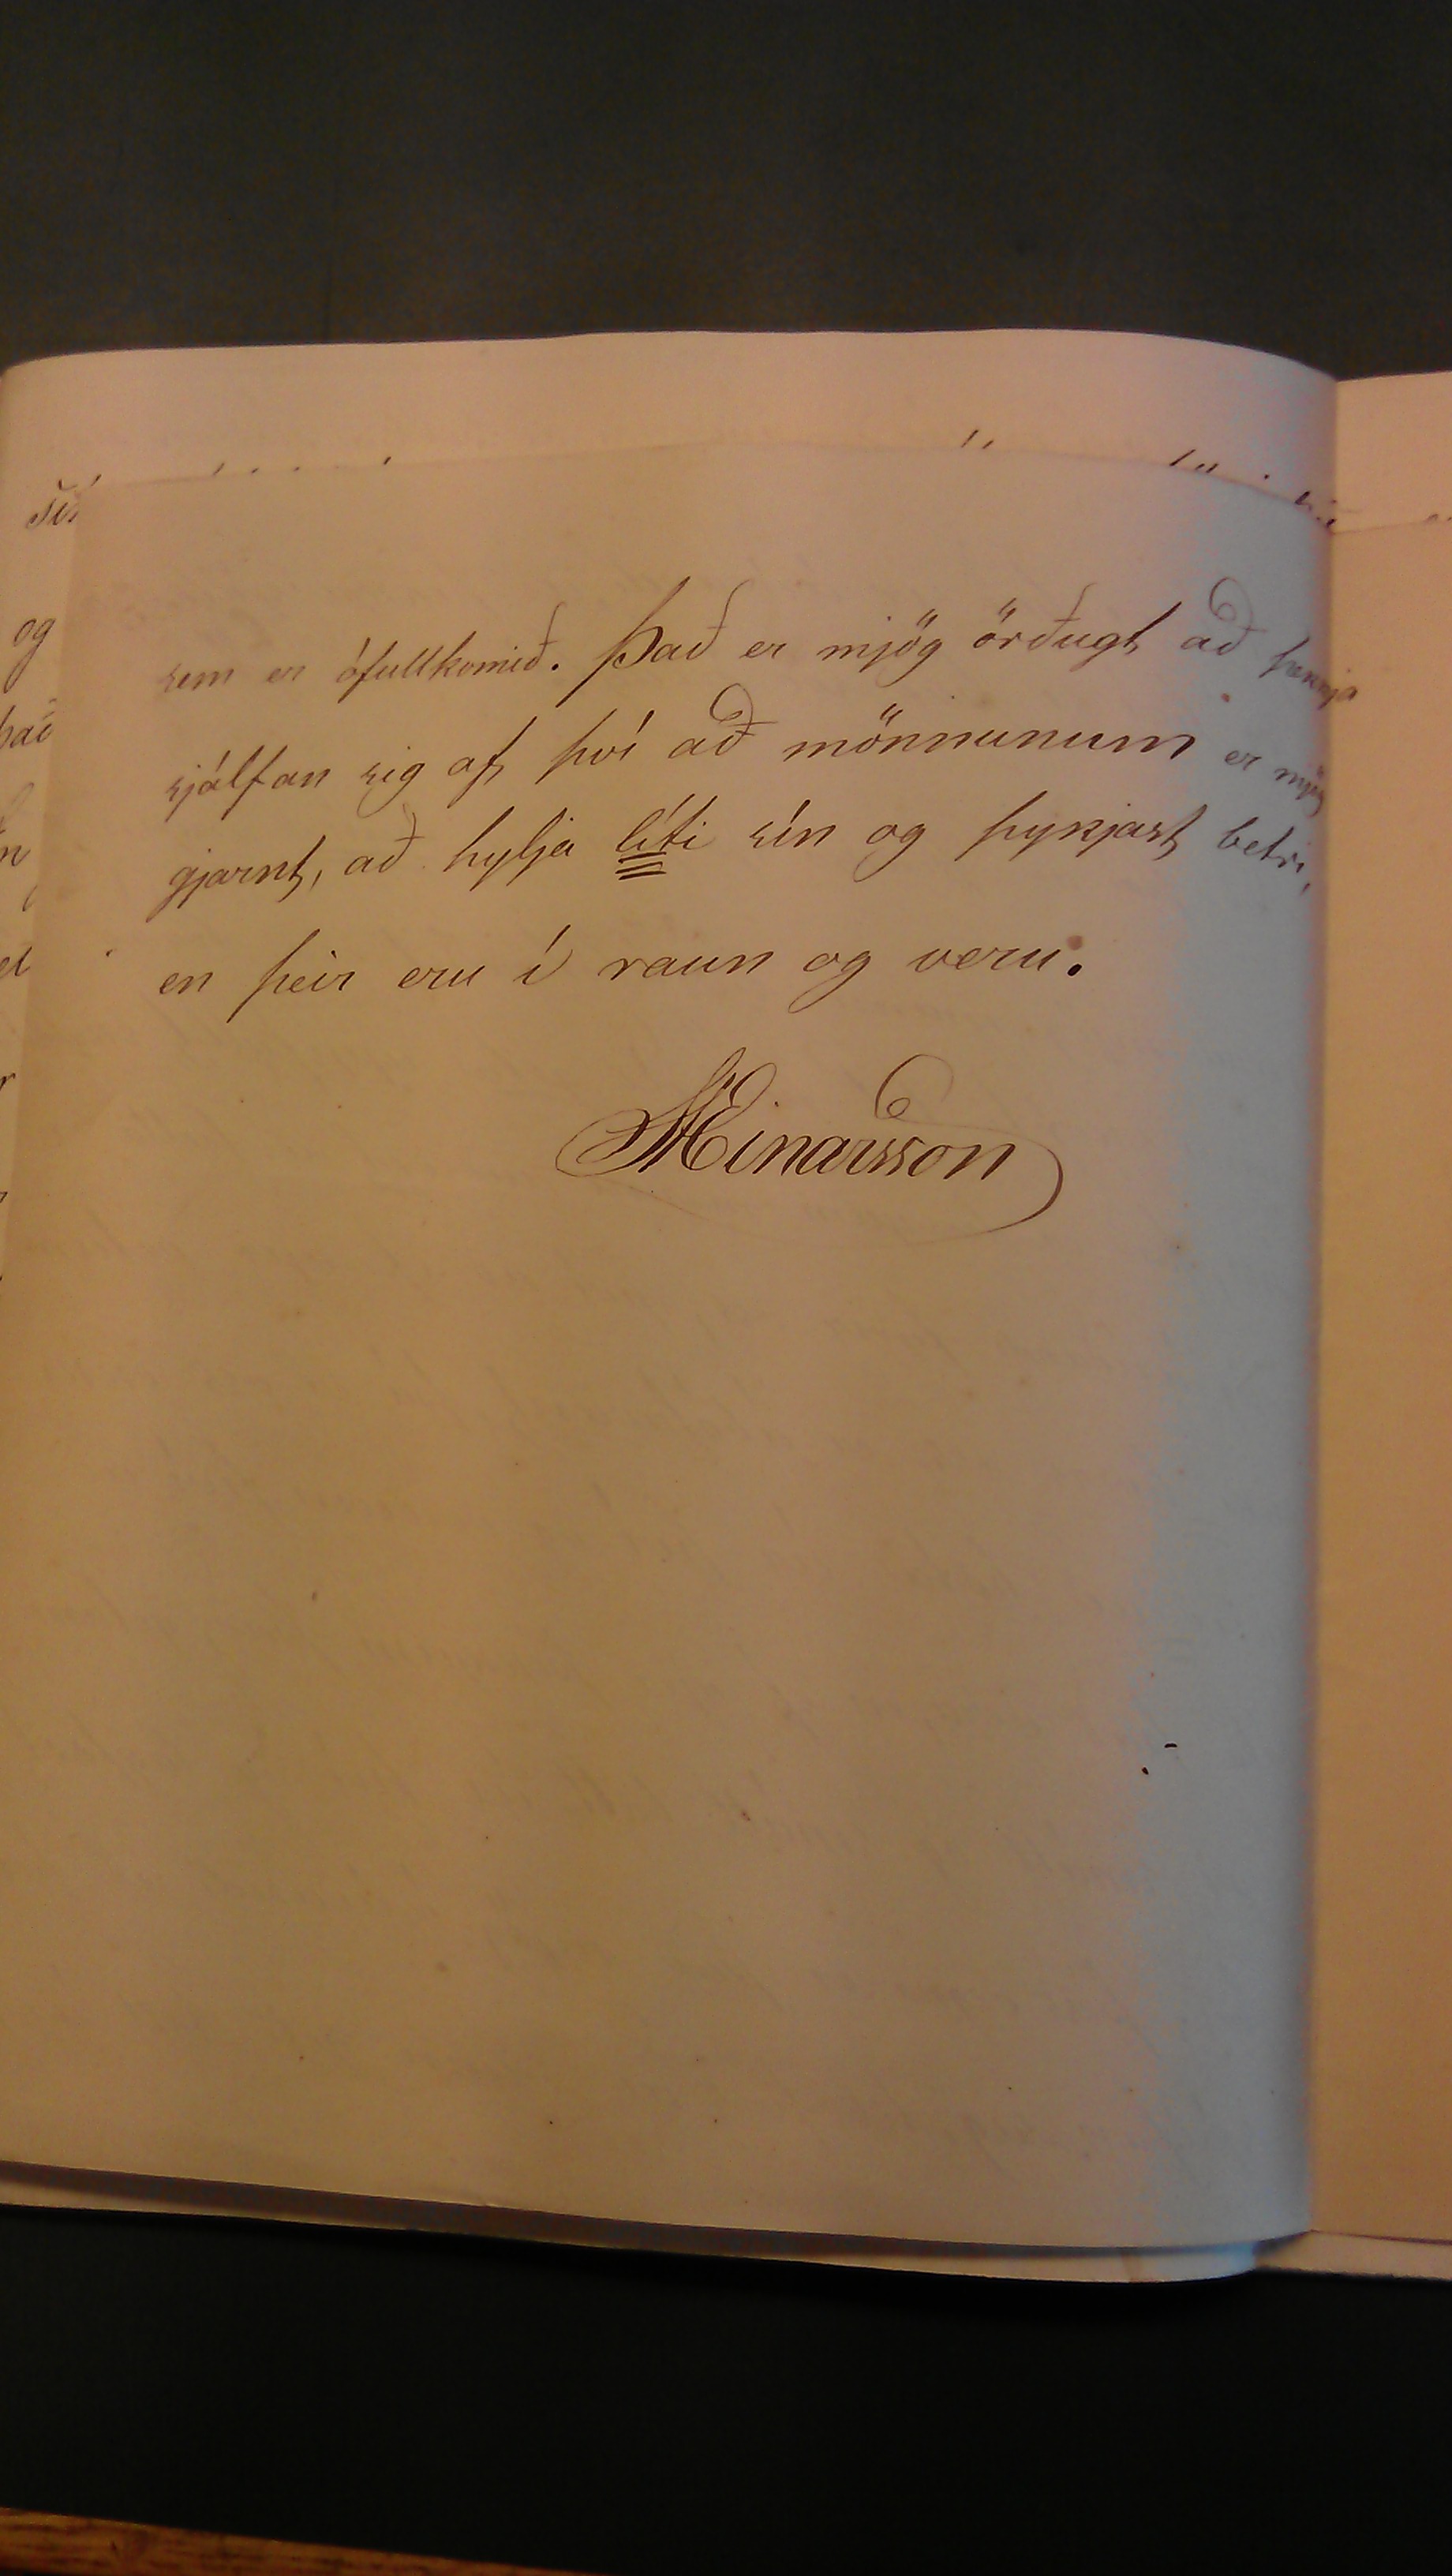 sem er ófullkomið. Það er mjög örðugt að þekkja
sjálfan sig af því að mönnunum er mjög
gjarnt, að hylja líti sín og þykjast betri,
en þeir eru í raun og veru.
Einarsson
og
það